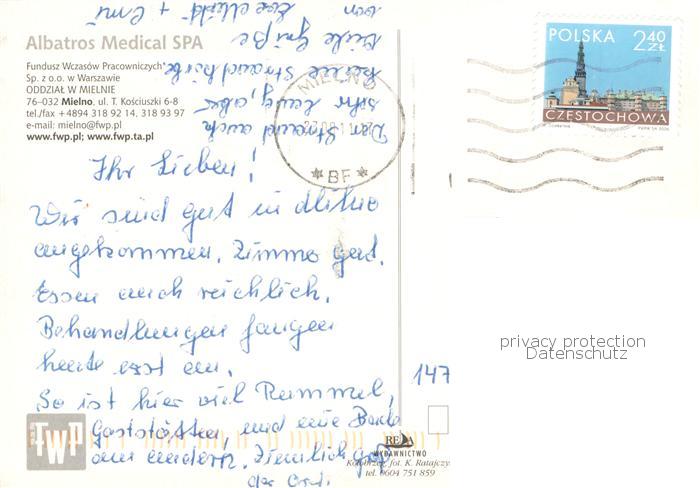 Albatros Medical SPA
Fundusz Wczasów Pracowniczych,
Sp. z o.o. w Warszawie
ODDZIAŁ W MIELNIE
76–032 Mielno, ul. T. Kościuszki 6-8
tel./fax +4894 318 92 14, 318 93 97
e-mail: mielno@fwp.pl
www.fwp.pl; www.fwp.ta.pl
POLSKA 2,40 ZŁ
CZĘSTOCHOWA
MIELNO
BF
Ihr Lieben!
Wir sind gut in
angekommen. Zimmer gut.
Essen auch reichlich.
Behandlungen fangen
heute erst an.
Es ist hier viel Rummel,
Gaststätten, und eine Bude
am andern. Ziemlich groß
der Ort.
Der Strand auch
sehr lang, aber
keine Strandkörbe.
Viele Grüße
von
147
privacy protection
Datenschutz
FWP
WYDAWNICTWO
Kołobrzeg, fot. K. Ratajczyk
tel. 0604 751 859